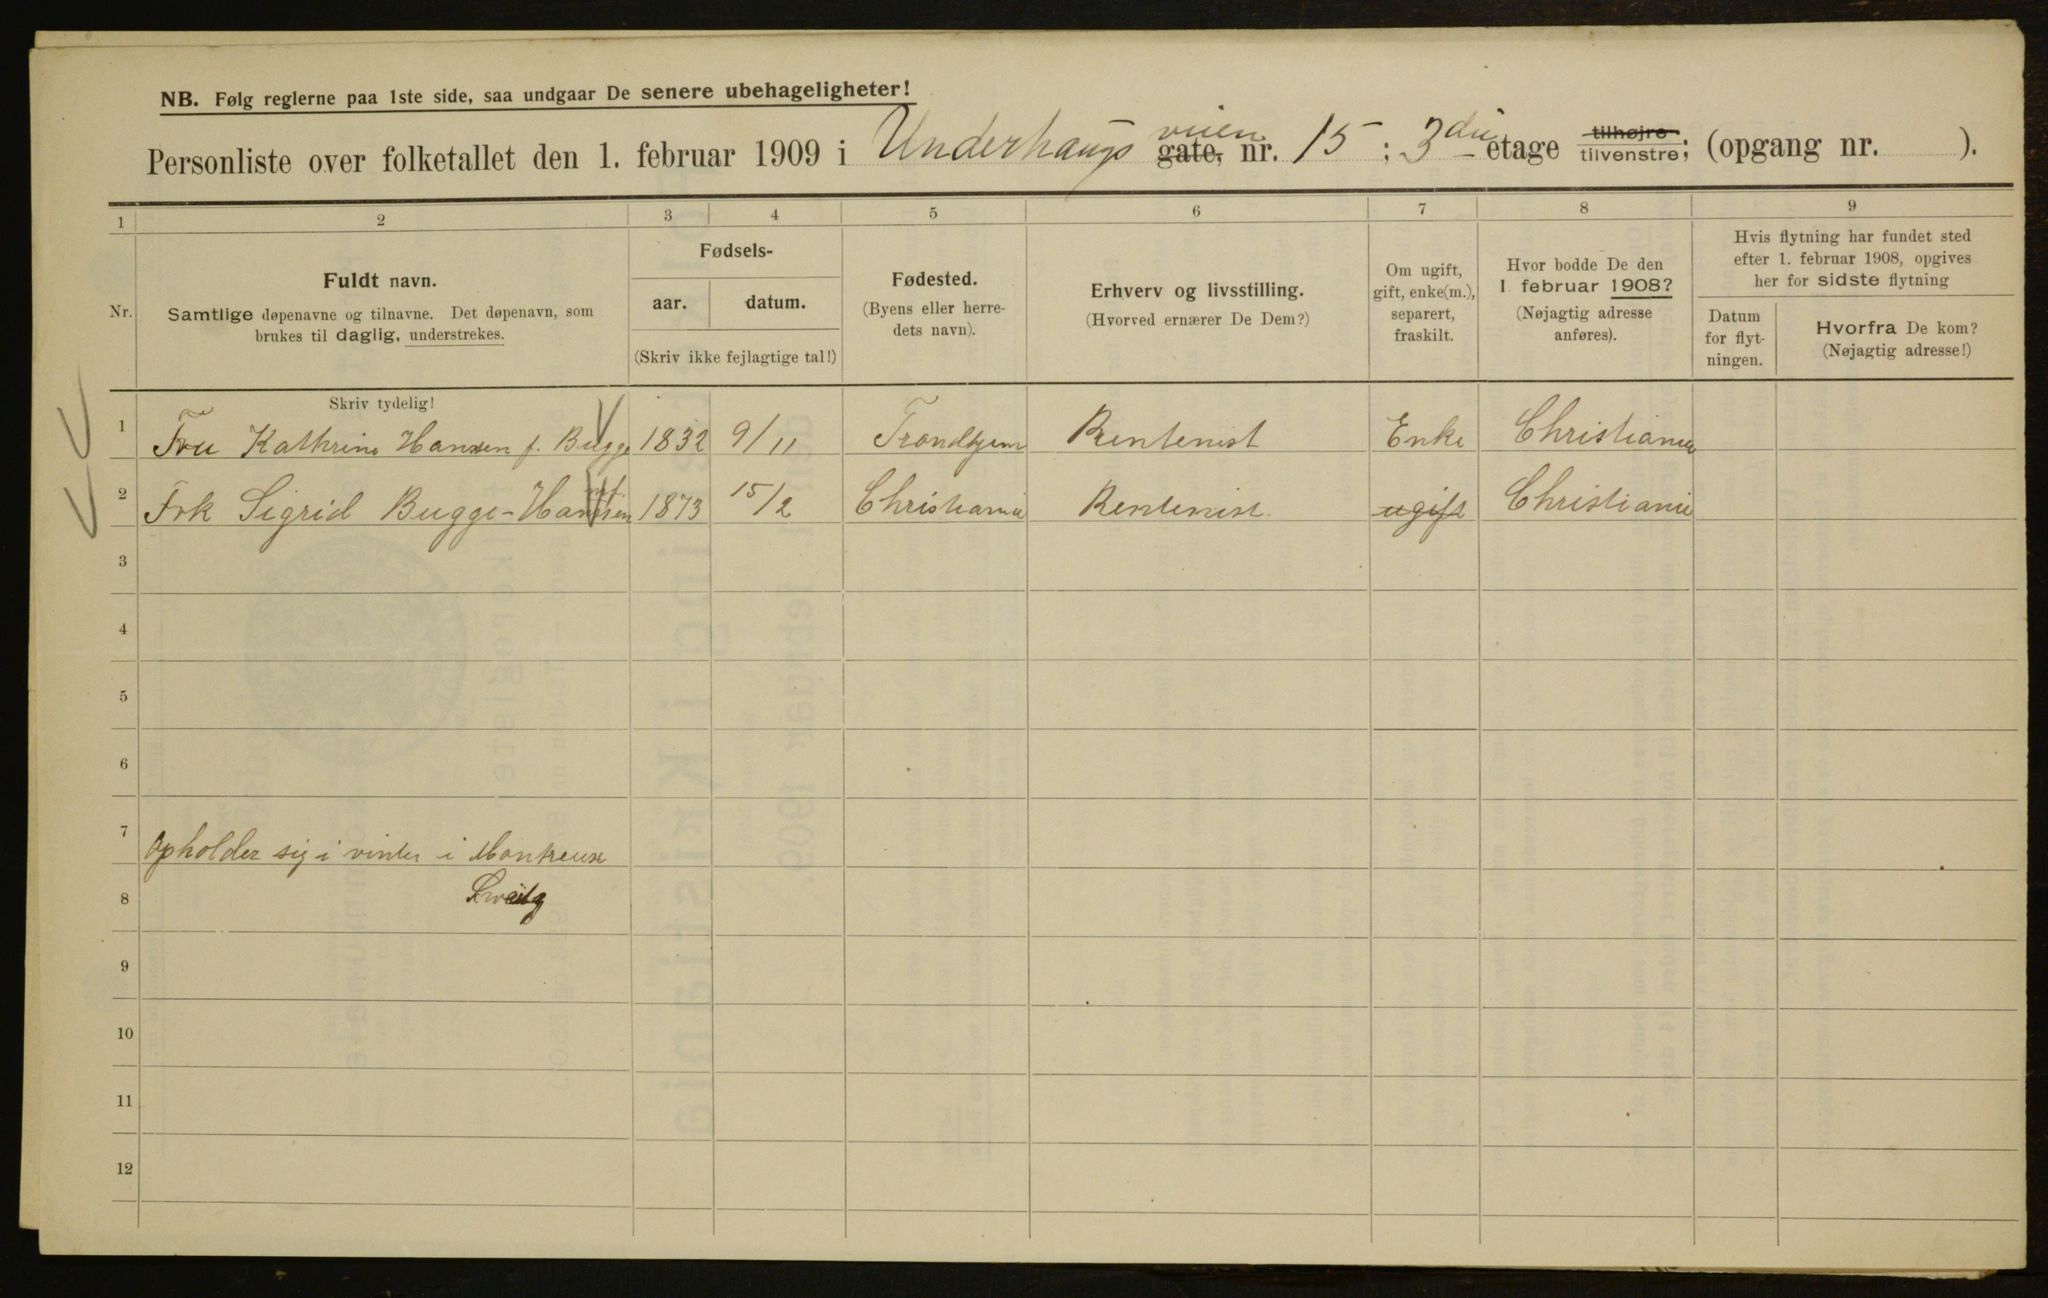 NB. Følg reglerne paa 1ste side, saa undgaar De senere ubehageligheter!
Personliste over folketallet den 1. februar 1909 i Underhaugs veien gate, nr. 15; 3die etage tilhøjre tilvenstre; (opgang nr. ).
1 2 3 4 5 6 7 8 9
Nr.
Fuldt navn.
Samtlige døpenavne og tilnavne. Det døpenavn, som
brukes til daglig, understrekes.
Skriv tydelig!
Fødsels-
aar. datum.
(Skriv ikke fejlagtige tal!)
Fødested.
(Byens eller herre-
dets navn).
Erhverv og livsstilling.
(Hvorved ernærer De Dem?)
Om ugift,
gift, enke(m.),
separert,
fraskilt.
Hvor bodde De den
1. februar 1908?
(Nøjagtig adresse
anføres).
Hvis flytning har fundet sted
efter 1. februar 1908, opgives
her for sidste flytning
Datum
for flyt-
ningen.
Hvorfra De kom?
(Nøjagtig adresse!)
1 Fru Kathrine Hansen f. Bugge 1832 9/11 Trondhjem Rentenist Enke Christiania
2 Frk Sigrid Bugge-Hansen 1873 15/2 Christiania Rentenist ugift Christiania
3
4
5
6
7 Opholder sig i vinter i Montreux
8
9
10
11
12